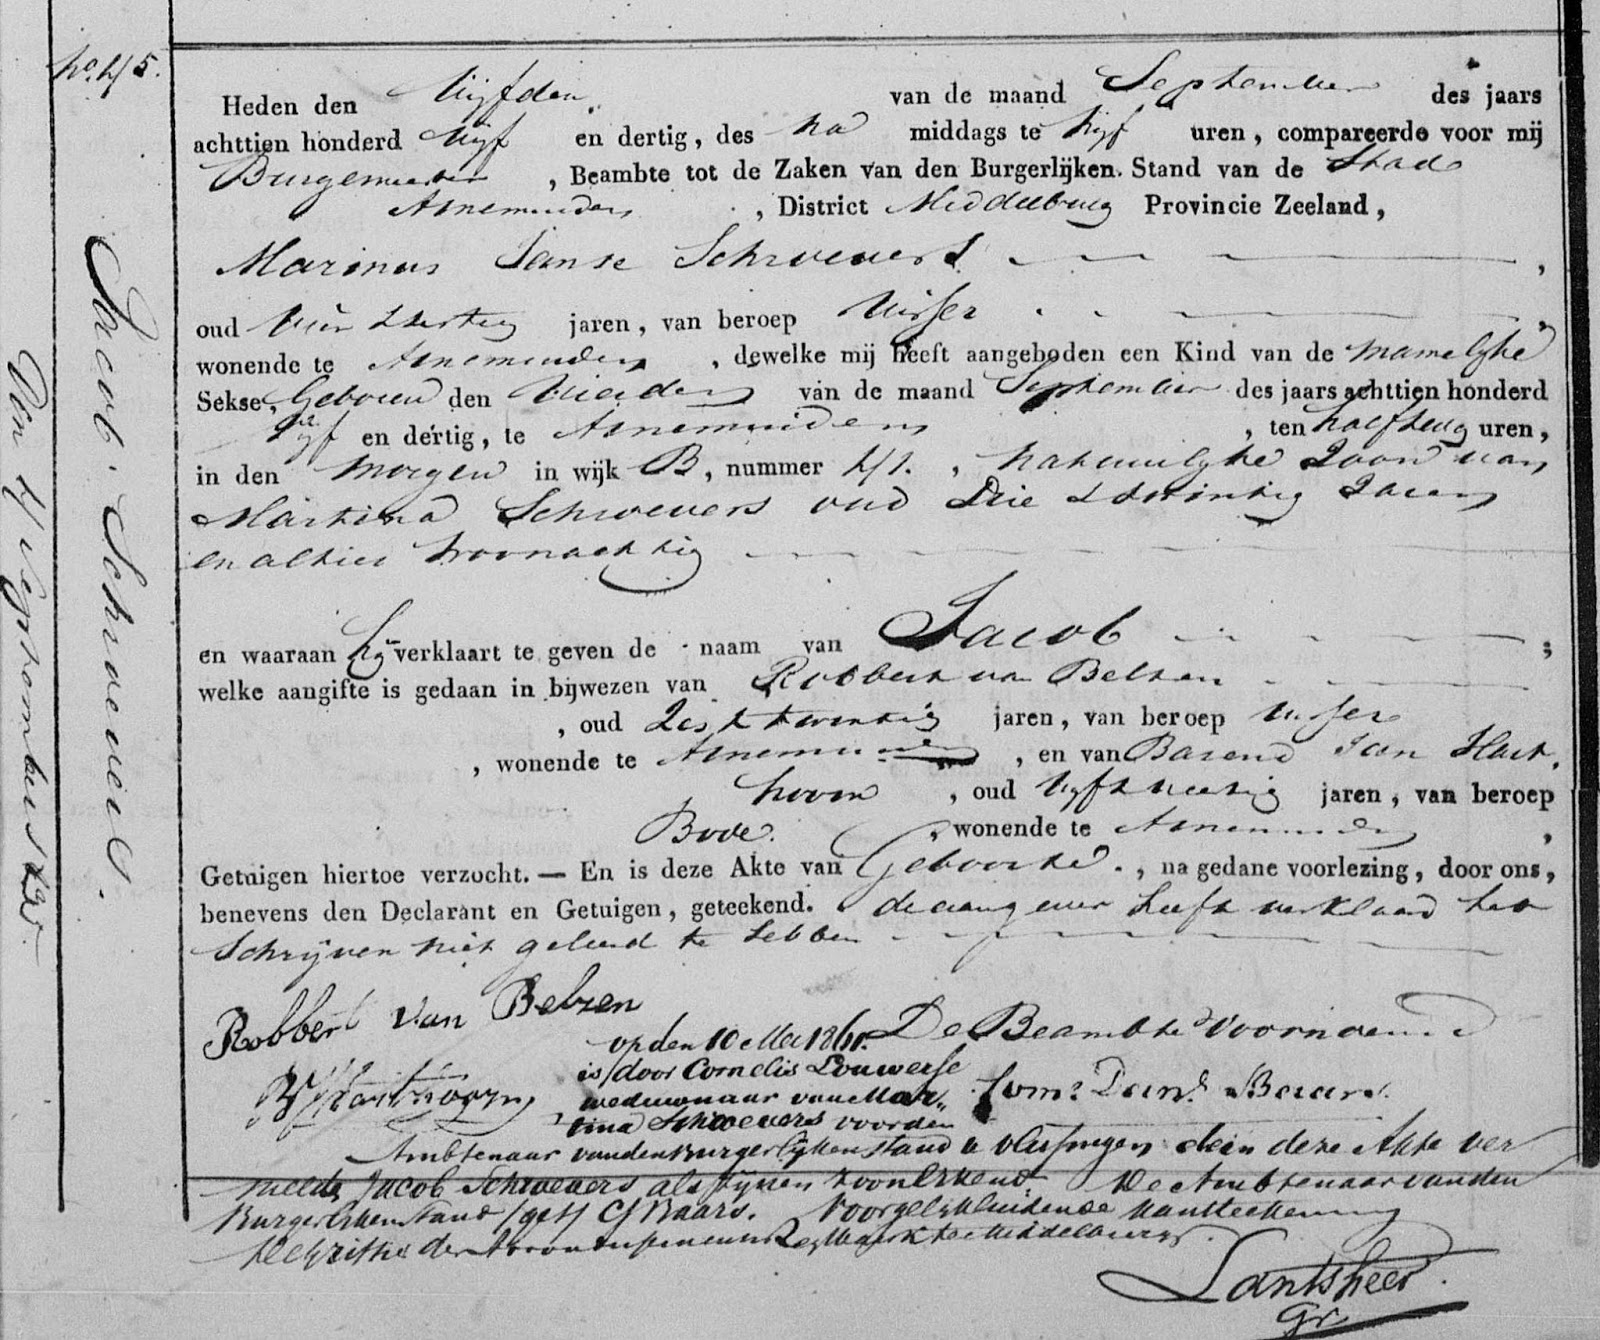 No. 45.
Jacob Schroevers.
Van 4 September 1835
Heden den Vijfden van de maand September des jaars
achttien honderd vijf en dertig, des na middags te vijf uren, compareerde voor mij
Burgemeester, Beambte tot de Zaken van den Burgerlijken Stand van de Stad
Arnemuiden, District Middelburg Provincie Zeeland,
Marinus Janse Schroevers,
oud Vier & dertig jaren, van beroep Visser
wonende te Arnemuiden, dewelke mij heeft aangeboden een Kind van de mannelijke
Sekse, Geboren den Vierden van de maand September des jaars achttien honderd
vijf en dertig, te Arnemuiden, ten half zeug uren,
in den morgen in wijk B, nummer 41., natuurlijke Zoon van
Martina Schroevers oud Drie & twintig Jaren
en alhier woonachtig
en waaraan hij verklaart te geven de naam van Jacob;
welke aangifte is gedaan in bijwezen van Robbert van Belzen
, oud Zes & twintig jaren, van beroep visser
, wonende te Arnemuiden, en van Barend Jan Hart.
hoorn, oud vijf & veertig jaren, van beroep
Bode., wonende te Arnemuiden,
Getuigen hiertoe verzocht. — En is deze Akte van Geboorte., na gedane voorlezing, door ons,
benevens den Declarant en Getuigen, geteekend. de aangever heeft verklaard het
Schrijven niet geleerd te hebben
Robbert van Belzen
De Beambte Voornoemd
BJ Harthoorn
Corns. Danl. Baars.
op den 10 Mei 1861.
is door Cornelis Louwerse
weduwnaar van Mar„
tina Schroevers voor den
Ambtenaar van den Burgerlijken Stand te Vlissingen de in deze Akte ver
melde Jacob Schroevers als zijnen zoon Erkend. De Ambtenaar van den
Burgerlijken Stand /get/ CJ Baars. Voor gelijkluidende kanttekening
De Griffier der Arrondissements Regtbank te Middelburg.
Lantsheer
Gr.